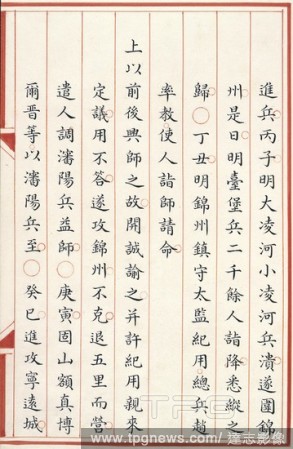 進兵丙子明大凌河小凌河兵潰遂圍錦
州是日明臺堡兵二千餘人詣降悉縱之
歸〇丁丑明錦州鎮守太監紀用總兵趙
率教使人詣師請命
上以前後興師之故開誠諭之并許紀用親來
定議用不答遂攻錦州不克退五里而營
遣人調瀋陽兵益師〇庚寅固山額真博
爾晉等以瀋陽兵至〇癸巳進攻寧遠城
TPG
www.tpgnews.com/達志影像